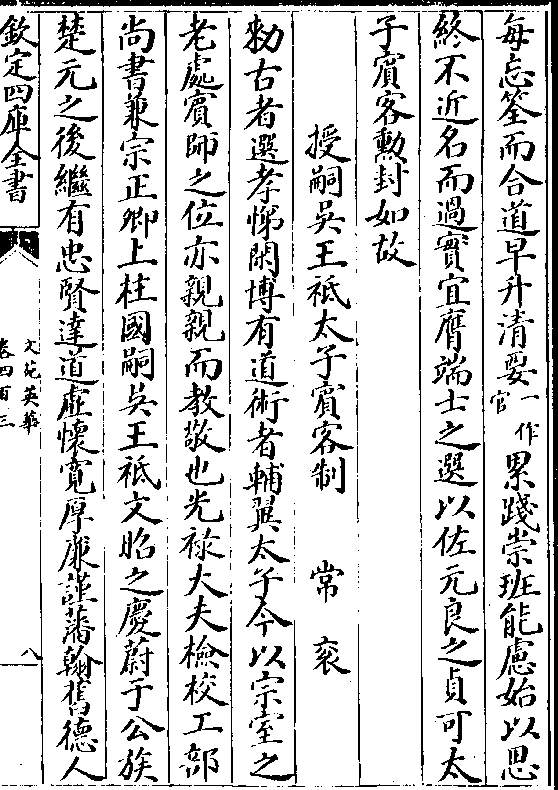 每忘筌而合道早升清要一作官累踐崇班能慮始以思
終不近名而過實宜膺端士之選以佐元良之貞可太
子賓客勲封如故
授嗣吳王祗太子賓客制 常衮
勑古者選孝悌閑博有道術者輔翼太子今以宗室之
老處賓師之位亦親親而教敬也光禄大夫檢校工部
尚書兼宗正卿上柱國嗣吳王祗文昭之慶蔚于公族
楚元之後繼有忠賢達道虛懷寛厚廉謹藩翰舊德人
欽定四庫全書
文苑英華
卷四百三
八